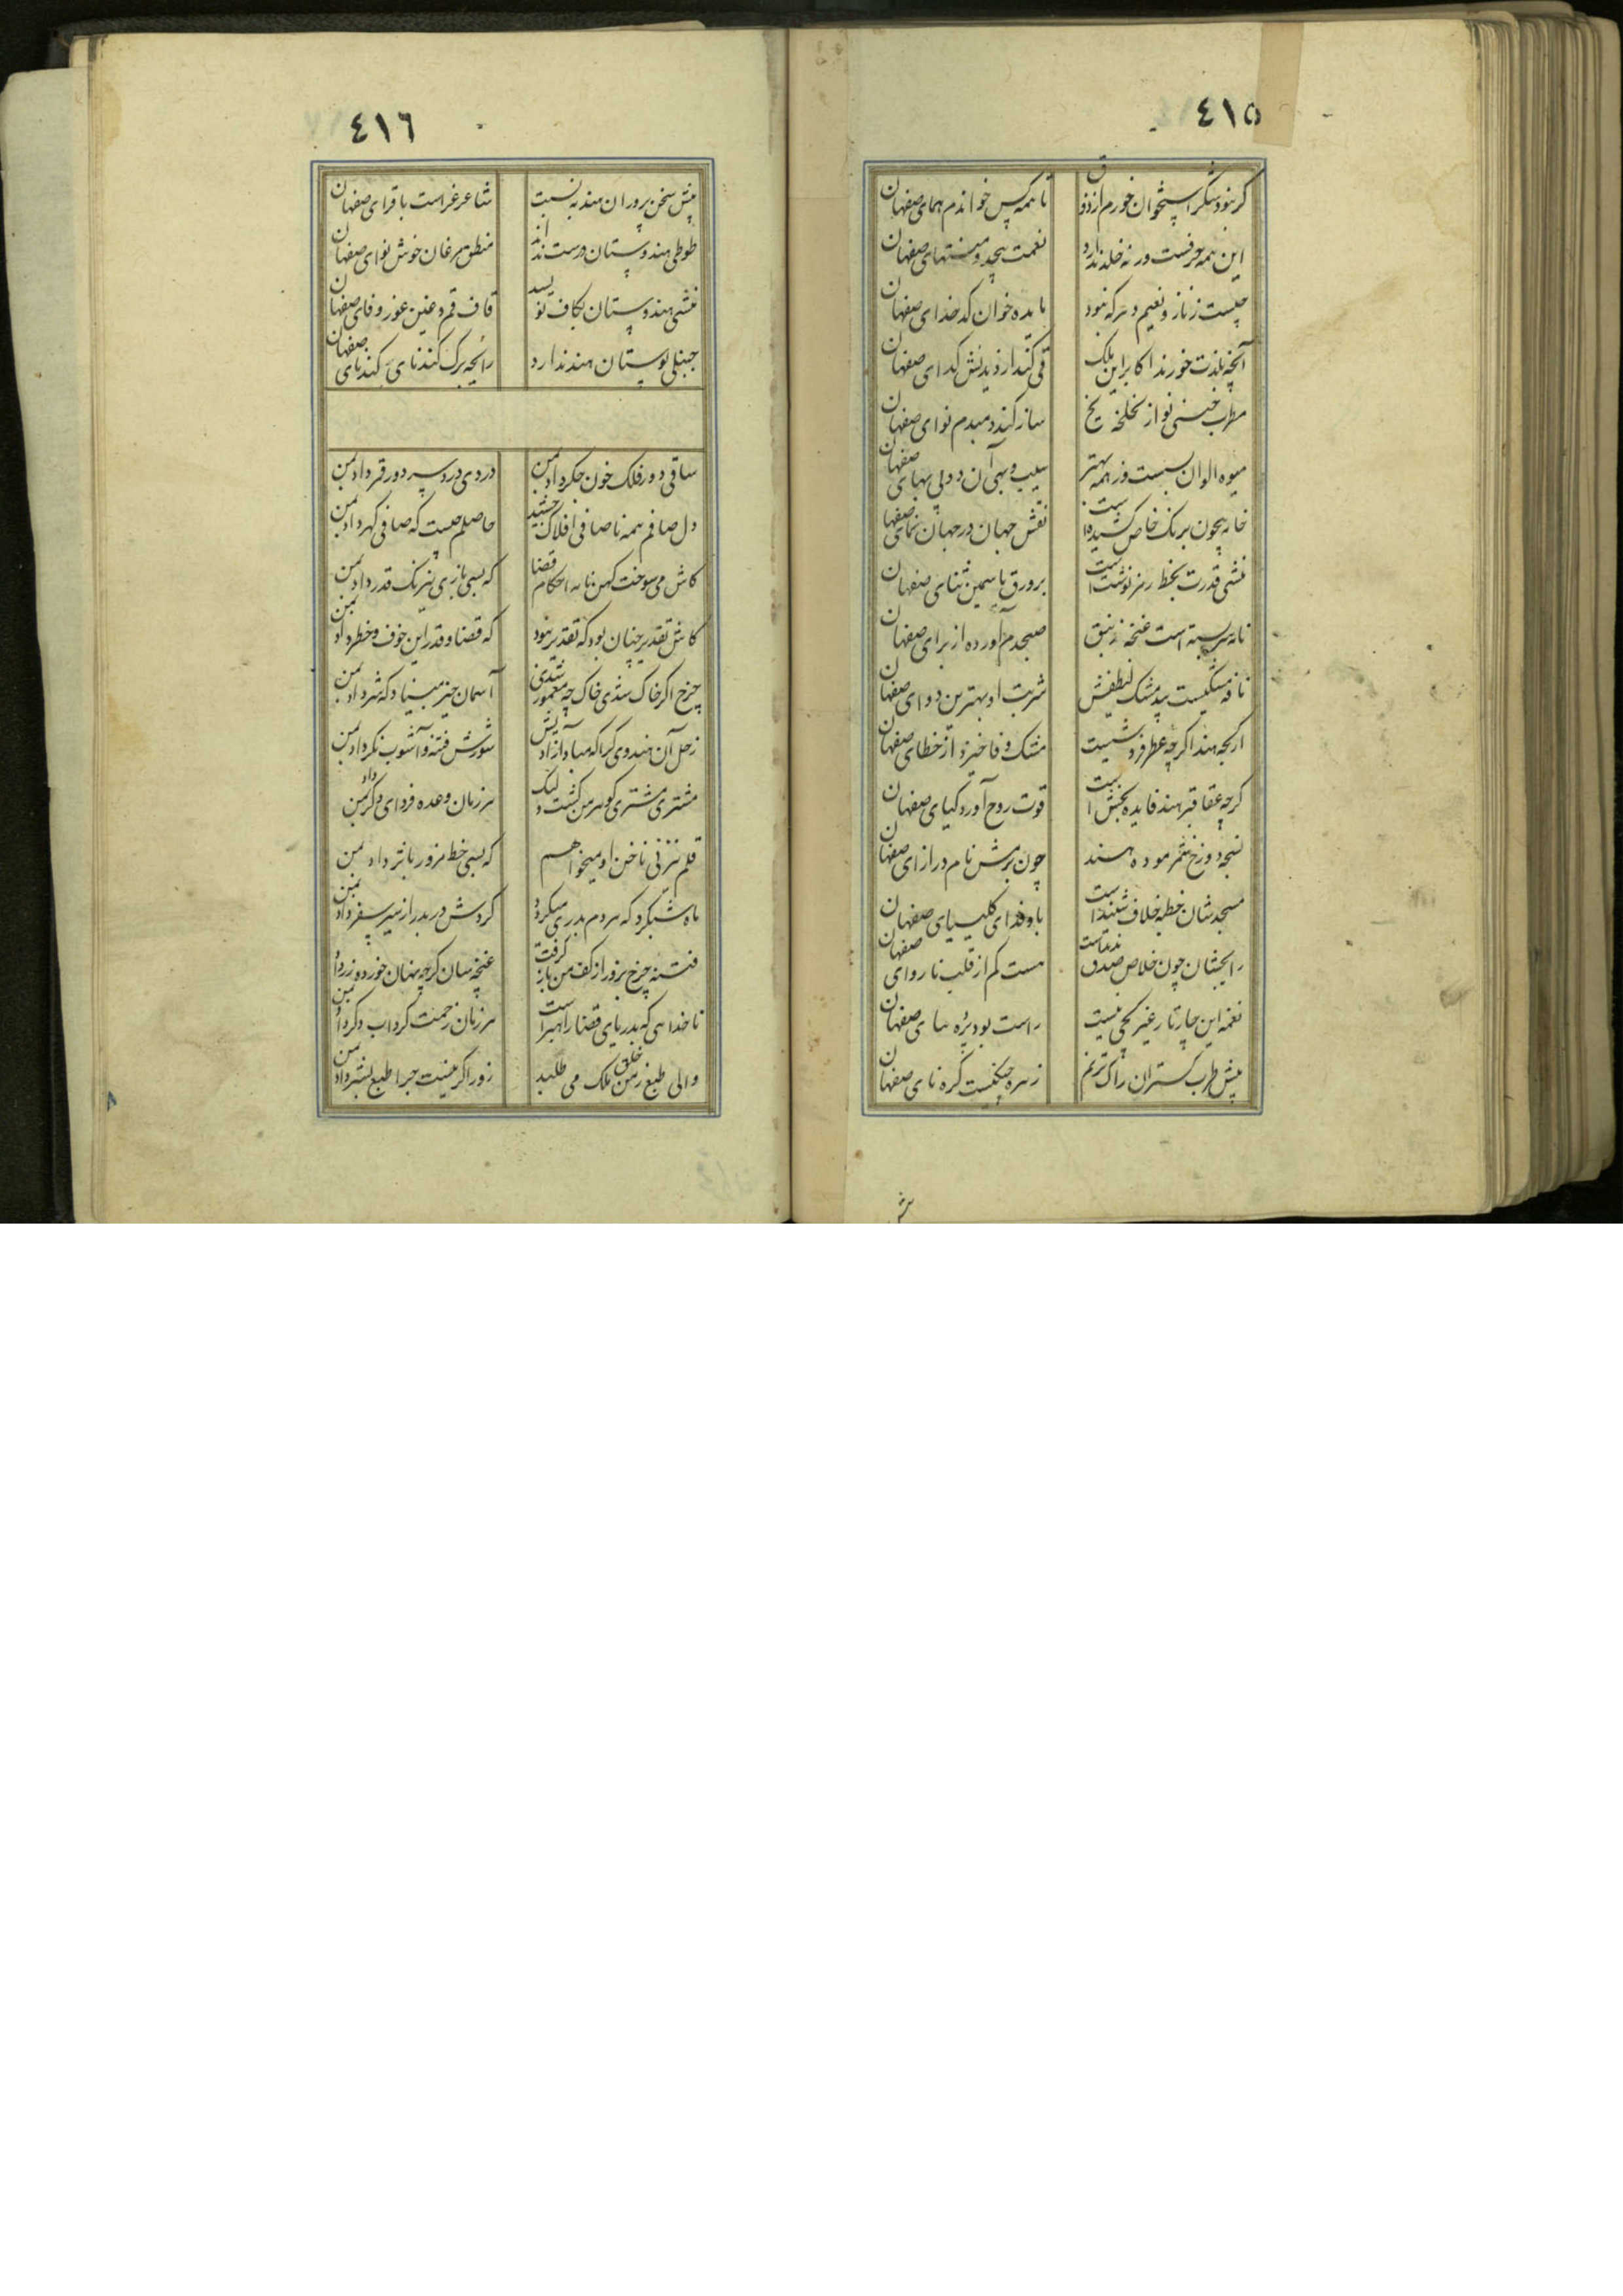 ٤١٥
گر نبود شکر استخوان خورم از ذوق
تا همه کس خواندم همای صفهان
این همه حرفست ورنه خلد ندارد
نعمت بیحد و منتهای صفهان
چیست ز ناز و نعیم دهر که نبود
مایده خوان کدخدای صفهان
آنچه بلذت خورند اکابر این ملک
قی کند از دیدنش گدای صفهان
مطرب
ساز کند دمبدم نوای صفهان
میوه الوان بسست وز همه بهتر
سیب و بهی آن دو دلبهای صفهان
خامه بیچون برنک خاص کشیده است
نقش جهان در جهان نمای صفهان
منشی قدرت بخط رمز نوشته است
بر ورق یاسمین ثنای صفهان
نامه سربسته است غنچه زنبق
صبحدم آورده از برای صفهان
نافه مشکیست بید مشک لطیفش
شربت او بهترین دوای صفهان
ارکجه هند اگرچه عطر فروشست
مشک وفا خیزد از خطای صفهان
گرچه عقاقیر هند فایده بخش است
قوت روح آورد گیای صفهان
چون برمش نام در ازای صفهان
مسجدشان خطبه خلاف شنیده است
باد فدای کلیسیای صفهان
رایجشان چون خلاص صدق ندیدست
هست کم از قلب ناروای صفهان
نغمه این چارتار غیر کجی نیست
راست بود پرده سای صفهان
پیش طرب گستران راک ترنم
زهره چنگیست کره نای صفهان
٤١٦
پیش سخن پروران هند به نسبت
شاعر غراست باقرای صفهان
طوطی هندوستان درست نداند
منطق مرغان خوش نوای صفهان
منشی هندوستان بکاف نویسد
قاف قم و غین عور و فای صفهان
جنبلی بوستان هند ندارد
رایحه برک گندنای صفهان
ساقی دور فلک خون جگر داد بمن
دردی درد سر دور قمر داد بمن
دل صافم همه ناصافی افلاک چشید
حاصلم چیست که صافی گهر داد بمن
کاش می سوخت کهن نامه احکام قضا
که بسی بازی نیرنک قدر داد بمن
کاش تقدیر چنان بود که تقدیر نبود
که قضا و قدر این خوف و خطر داد بمن
چرخ اگر خاک شدی خاک چه معمور شدی
آسمان جز
زحل آن هندوی گمراه که مباد آزادیش
شورش فتنه و آشوب نگر داد بمن
مشتری مشتری گوهر من گشت ولیک
هر زمان وعده فردای دگر داد بمن
قلم نیزنی ناخن او میخواهم
که بسی خط مزور بنثر داد بمن
ماه شبگرد که هر دم بدری میگردد
گردش در بدر از سیر سفر داد بمن
فتنه چرخ بزور از کف من باز گرفت
غنچه سان گرچه نهان خورده زر داد بمن
ناخدایی که بدریای قضا راهبر است
هر زمان زحمت گرداب دگر داد بمن
والی طبع ز من خلق ملک می طلبد
زور اگر نیست چرا طبع بشر داد بمن